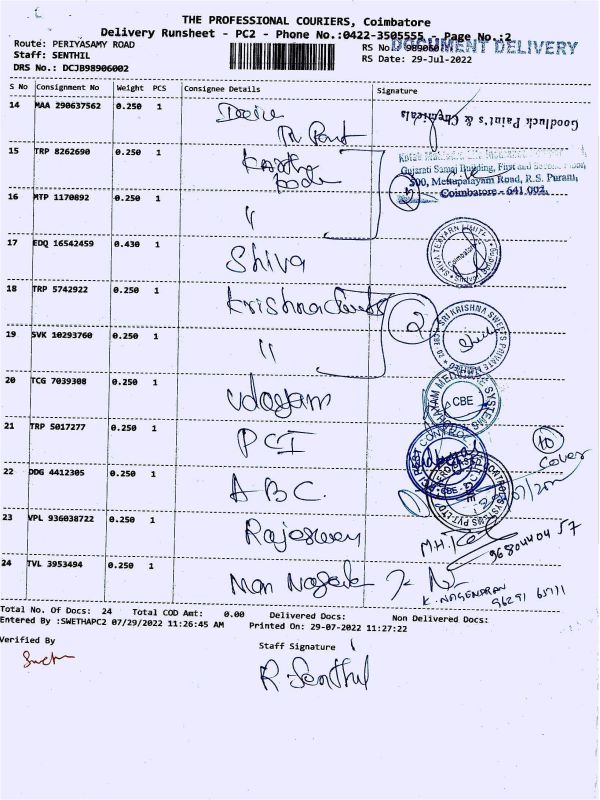 THE PROFESSIONAL COURIERS, Coimbatore
Delivery Runsheet - PC2 - Phone No.:0422-3505555 - Page No.:2
DOCUMENT DELIVERY
Route: PERIYASAMY ROAD
Staff: SENTHIL
DRS No.: DCJB98906002
RS No.
RS Date: 29-Jul-2022
S No Consignment No Weight PCS Consignee Details Signature
14 MAA 290637562 0.250 1
Goodluck Paint's & Chemicals
15 TRP 8262690 0.250 1
Gujarati Samaj Building, First and Second Floor,
500, Mettupalayam Road, R.S. Puram,
Coimbatore - 641 002.
16 MTP 1170892 0.250 1 "
17 EDQ 16542459 0.430 1 Shiva
18 TRP 5742922 0.250 1 Krishna Sweets 2
SRI KRISHNA SWEETS PRIVATE LIMITED
19 SVK 10293760 0.250 1 "
20 TCG 7039308 0.250 1 Udayam
CBE
21 TRP 5017277 0.250 1 PCI
PEST CONTROL
CBE
10 Cover
22 DDG 4412305 0.250 1 ABC
23 VPL 936038722 0.250 1 Rajeswary
24 TVL 3953494 0.250 1
K. NAGENDRAN
Total No. Of Docs: 24 Total COD Amt: 0.00 Delivered Docs: Non Delivered Docs:
Entered By :SWETHAPC2 07/29/2022 11:26:45 AM Printed On: 29-07-2022 11:27:22
Verified By
Staff Signature
R. Senthil